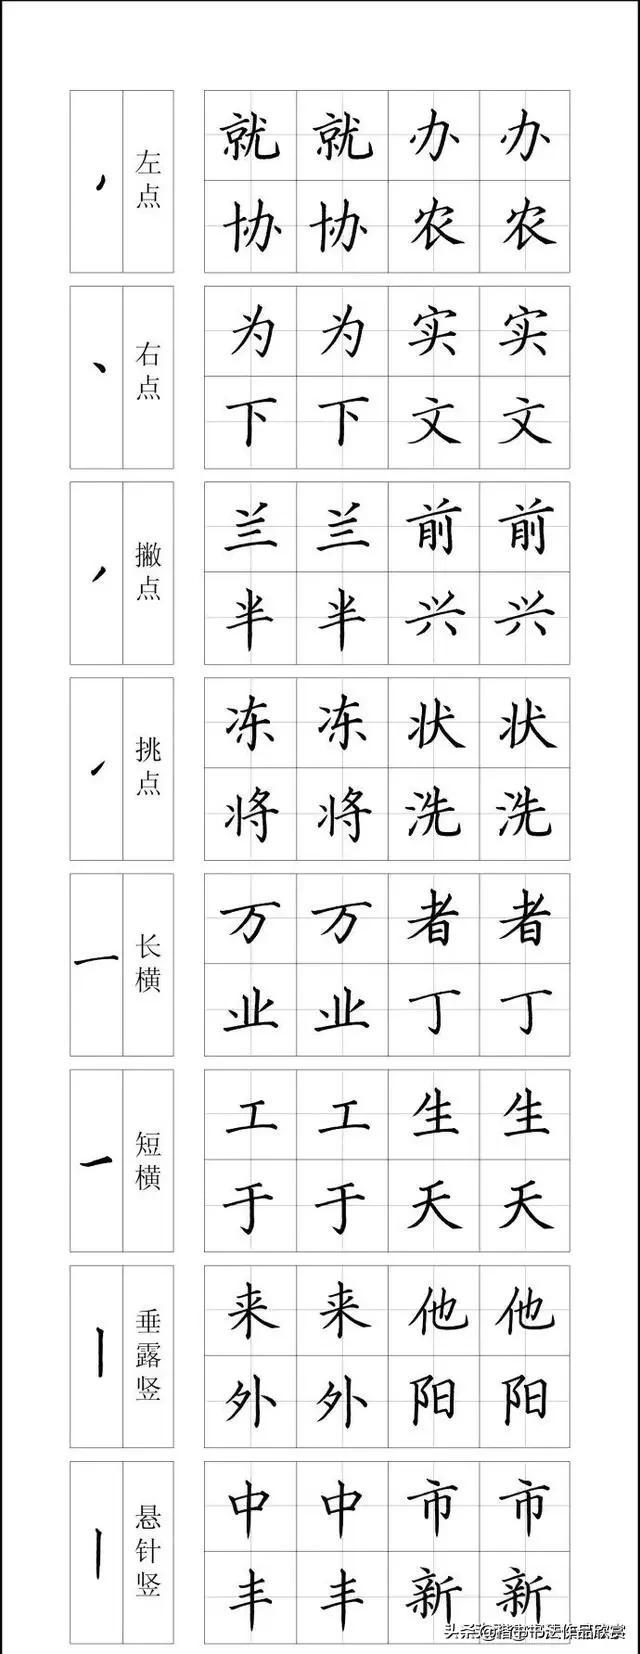 左点
就就办办
协协农农
右点
为为实实
下下文文
撇点
兰兰前前
半半兴兴
挑点
冻冻状状
将将洗洗
长横
万万者者
业业丁丁
短横
工工生生
于于天天
垂露竖
来来他他
外外阳阳
悬针竖
中中市市
丰丰新新
头条@楷书书法作品欣赏